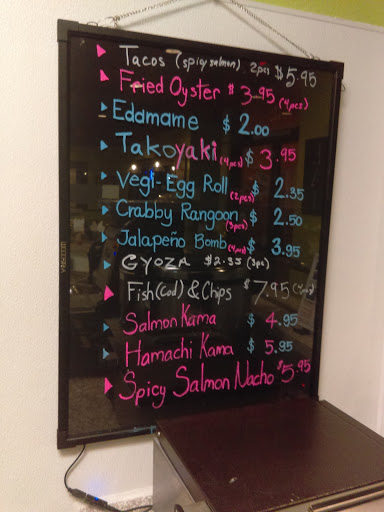 Tacos (spicy salmon) 2pcs $5.95
Fried Oyster $3.95 (4pcs)
Edamame $2.00
Takoyaki (4pcs) $3.95
Vegi-Egg Roll (2pcs) $2.35
Crabby Rangoon (3pcs) $2.50
Jalapeño Bomb (4pcs) $3.95
GYOZA $2.35 (3pc)
Fish (Cod) & Chips $7.95
Salmon Kama $4.95
Hamachi Kama $5.95
Spicy Salmon Nacho $5.95